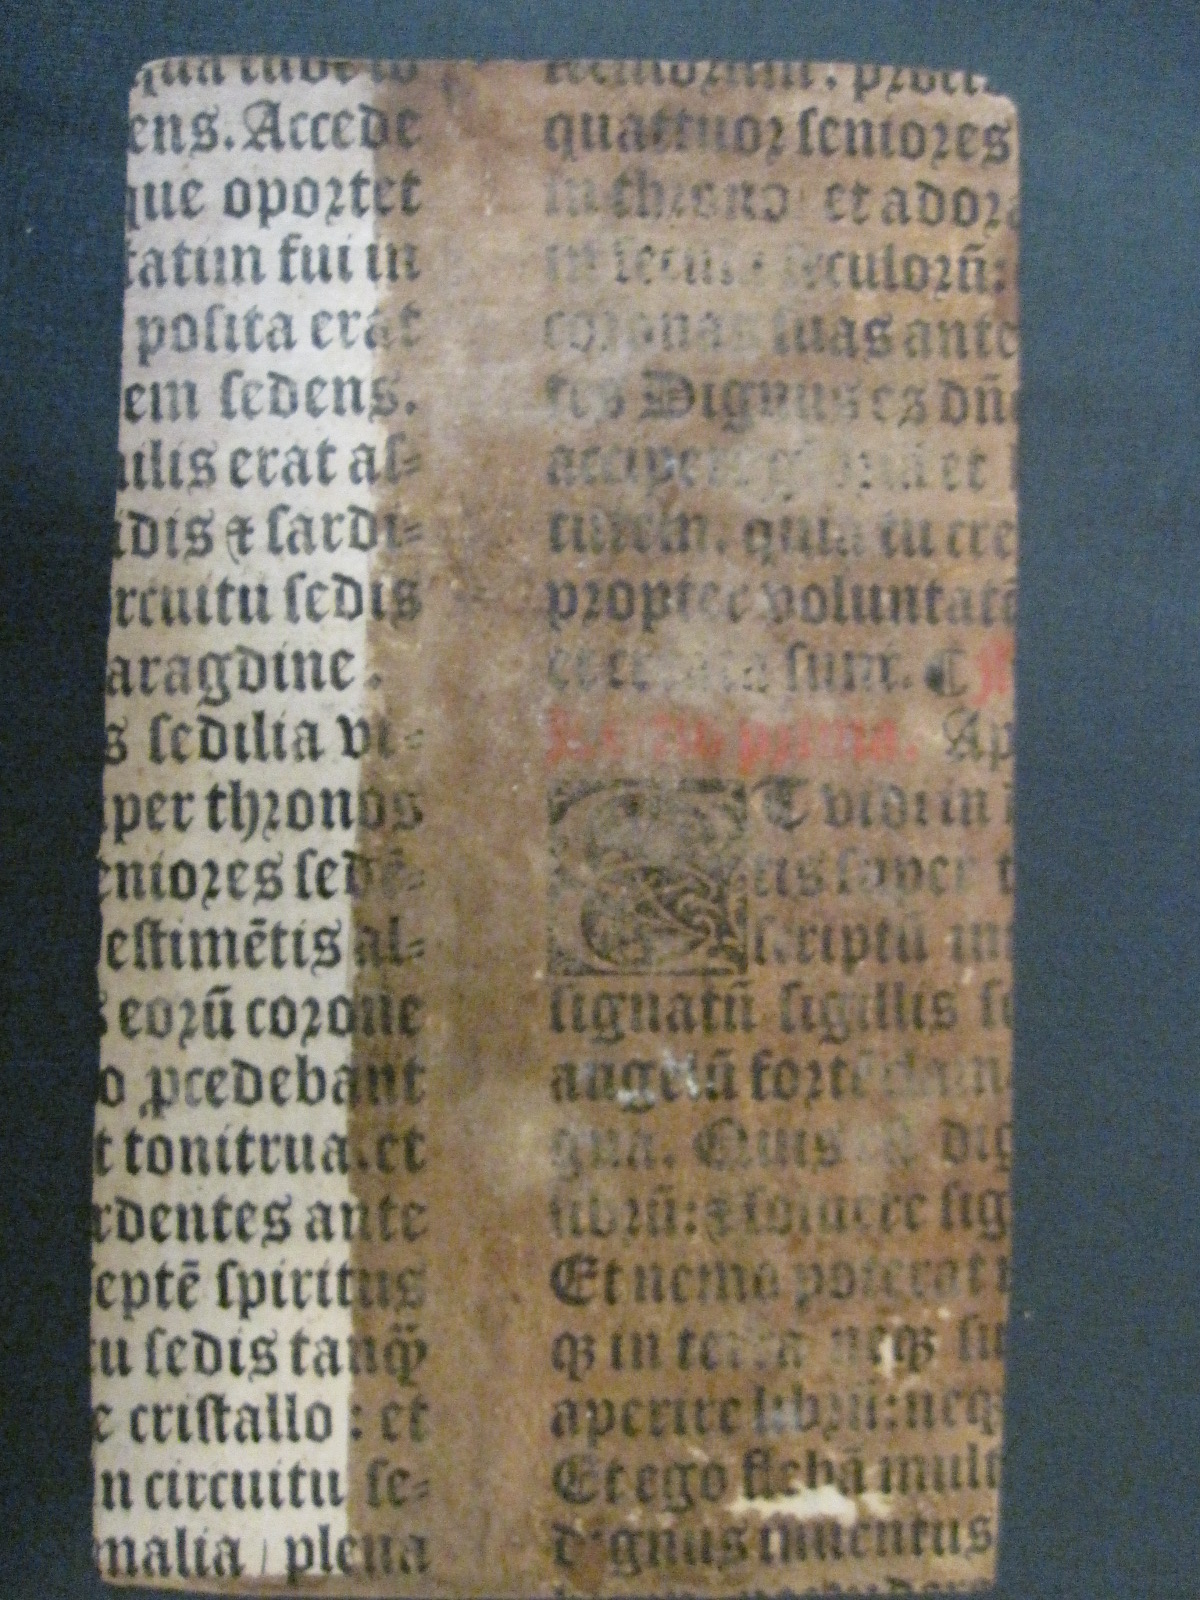 ens. Accede
que oportet
tatim fui in
posita erat
em sedens.
ilis erat as⸗
idis ⁊ sardi⸗
rcuitu sedis
aragdine.
s sedilia vi⸗
per thronos
eniores sedē⸗
estimētis al⸗
s eorū corone
o ꝓcedebant
t tonitrua. et
rdentes ante
septē spiritus
tu sedis tanq̄ꝫ
e cristallo : et
n circuitu se⸗
malia / plena
quattuor seniores
in throno et ador
seculorū:
coronas suas ante
tes Dignus es dn̄
accipere et
tutem. quia tu cre
propter voluntatē
et creata sunt. ¶
prima. Ap
ET vidi in
tis super t
scriptū int
signatū sigillis se
angelū fortē
gna. Quis est dig
librū: ⁊ soluere sig
Et nemo poterat i
qꝫ in terra neqꝫ su
aperire librū: neqꝫ
Et ego flebā mult
dignus inuentus